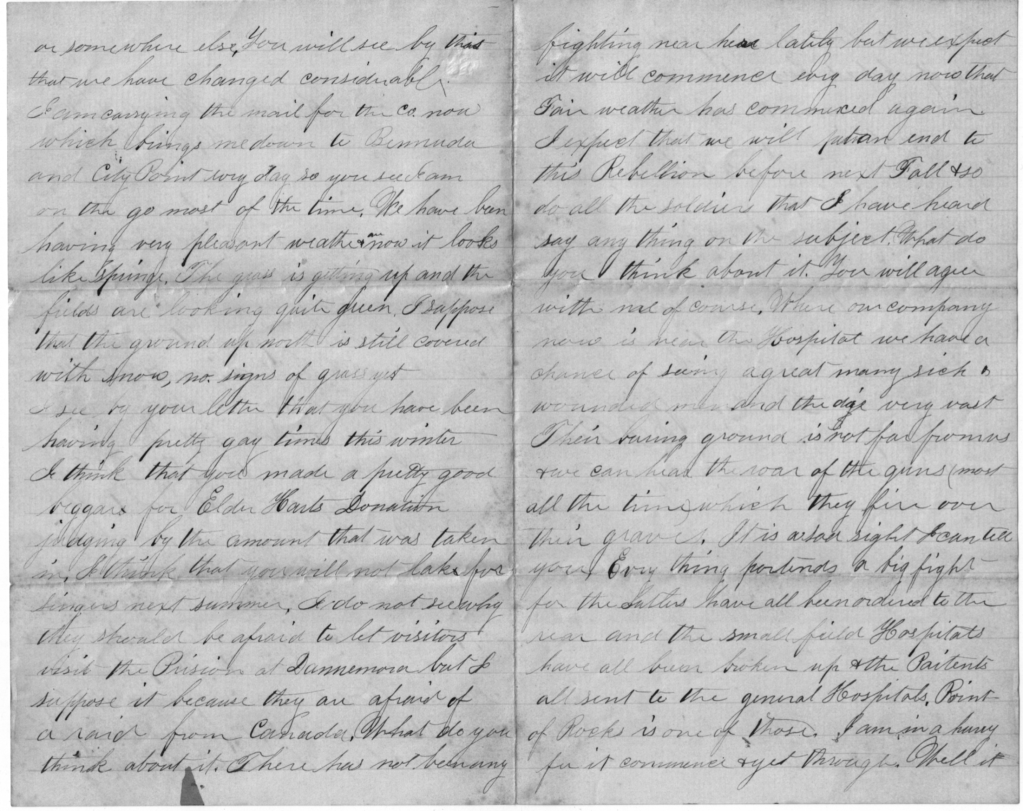 or somewhere else, You will see by this
that we have changed considerabl.
I am carrying the mail for the Co. now
which brings me down to Bermuda
and City Point evry day so you see I am
on the go most of the time. We have been
having very pleasant weather now it looks
like Springe. The grass is getting up and the
fields are looking quite green. I suppose
that the ground up north is still covered
with snow, no signs of grass yet
I see by your letter that you have been
having pretty gay times this winter
I think that you made a pretty good
beggars for Elder Harts Donation
judging by the amount that was taken
in. I think that you will not lake for
singers next summer. I do not see why
they should be afraid to let visitors
visit the Prision at Dannemora but I
suppose it because they are afraid of
a raid from Canada. What do you
think about it. There has not been any
fighting near here lately but we expect
it will commence evry day now that
Fair weather has commenced again
I expect that we will put an end to
this Rebellion before next Fall & so
do all the soldiers that I have heard
say any thing on the subject. What do
you think about it. You will agree
with me of course. Where our company
now is near the Hospital we have a
chance of seeing a great many sick &
wounded men and the die very vast
Their buring ground is not far from us
& we can hear the roar of the guns (most
all the time) which they fire over
their graves. It is a sad sight I can tell
you, Evry thing portends a big fight
for the Sutlers have all been ordered to the
rear and the small field Hospitals
have all been broken up & the Paitents
all sent to the general Hospitals. Point
of Rocks is one of those. I am in a hurry
for it commence & get through. Well it